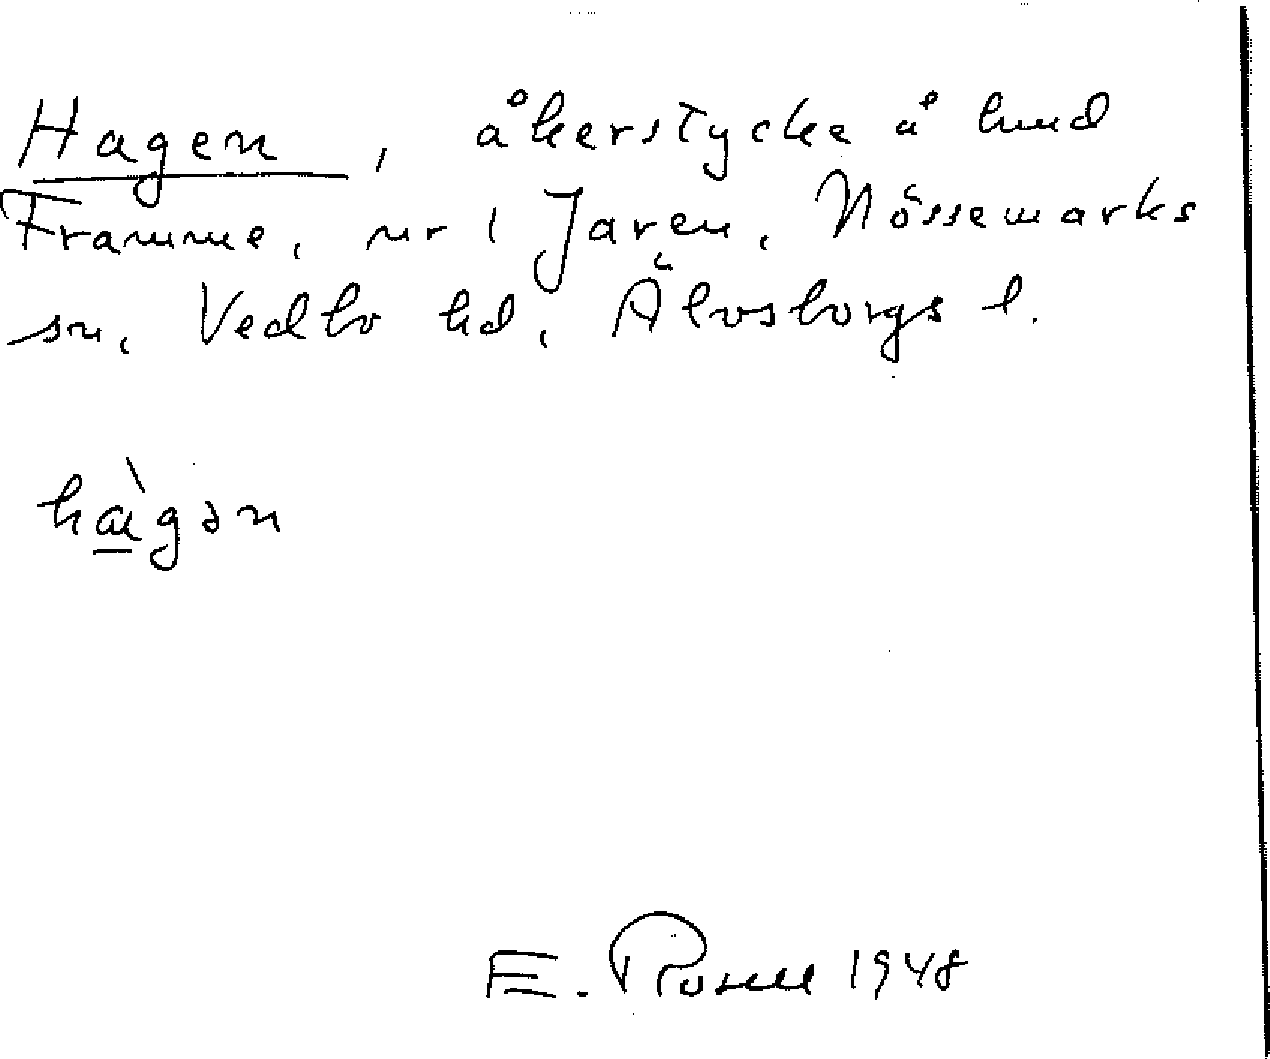 Hagen, åkerstycke å lund
Framme, nr 1 Jaren, Nössemarks
sn, Vedbo hd, Älvsborgs l.
hàgən
E. Rosell 1948